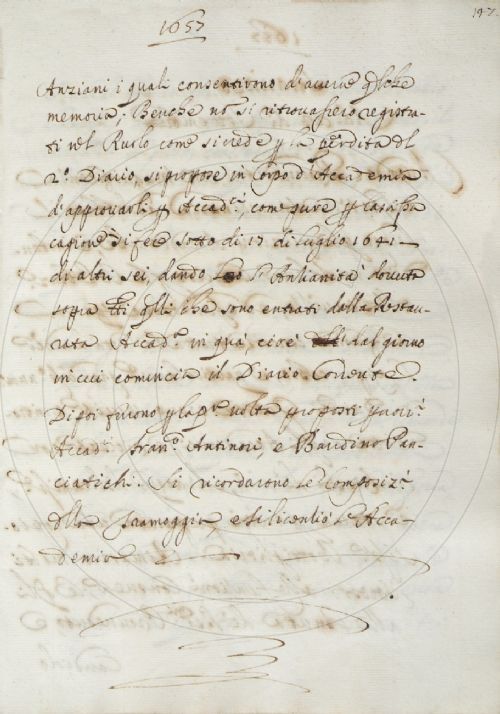 147.
1657
Anziani i quali consentirono d'averne qlche
memoria; Benche nō si ritrovassero registra-
ti nel Ruolo come si crede p la perdita dl
2º. Diario, si propose in corpo d'Accademia
d'approvarli p Accad.ci, come pure p la stessa
cagione si fece sotto di 17 di Luglio 1641
di altri sei, dando loro l'Anzianità dovuta
sopra tti qlli che sono entrati dalla Restau-
rata Accad.a in quà, cioè dal giorno
in cui comincia il Diario Corrente.
Di poi furono p la pa. volta proposti p nuovi
Accad.ci Fran.o Antinori, e Bandino Pan-
ciatichi. Si ricordarono le Composiz.i
dlla Scamoggia e si licentiò l'Acca-
demia